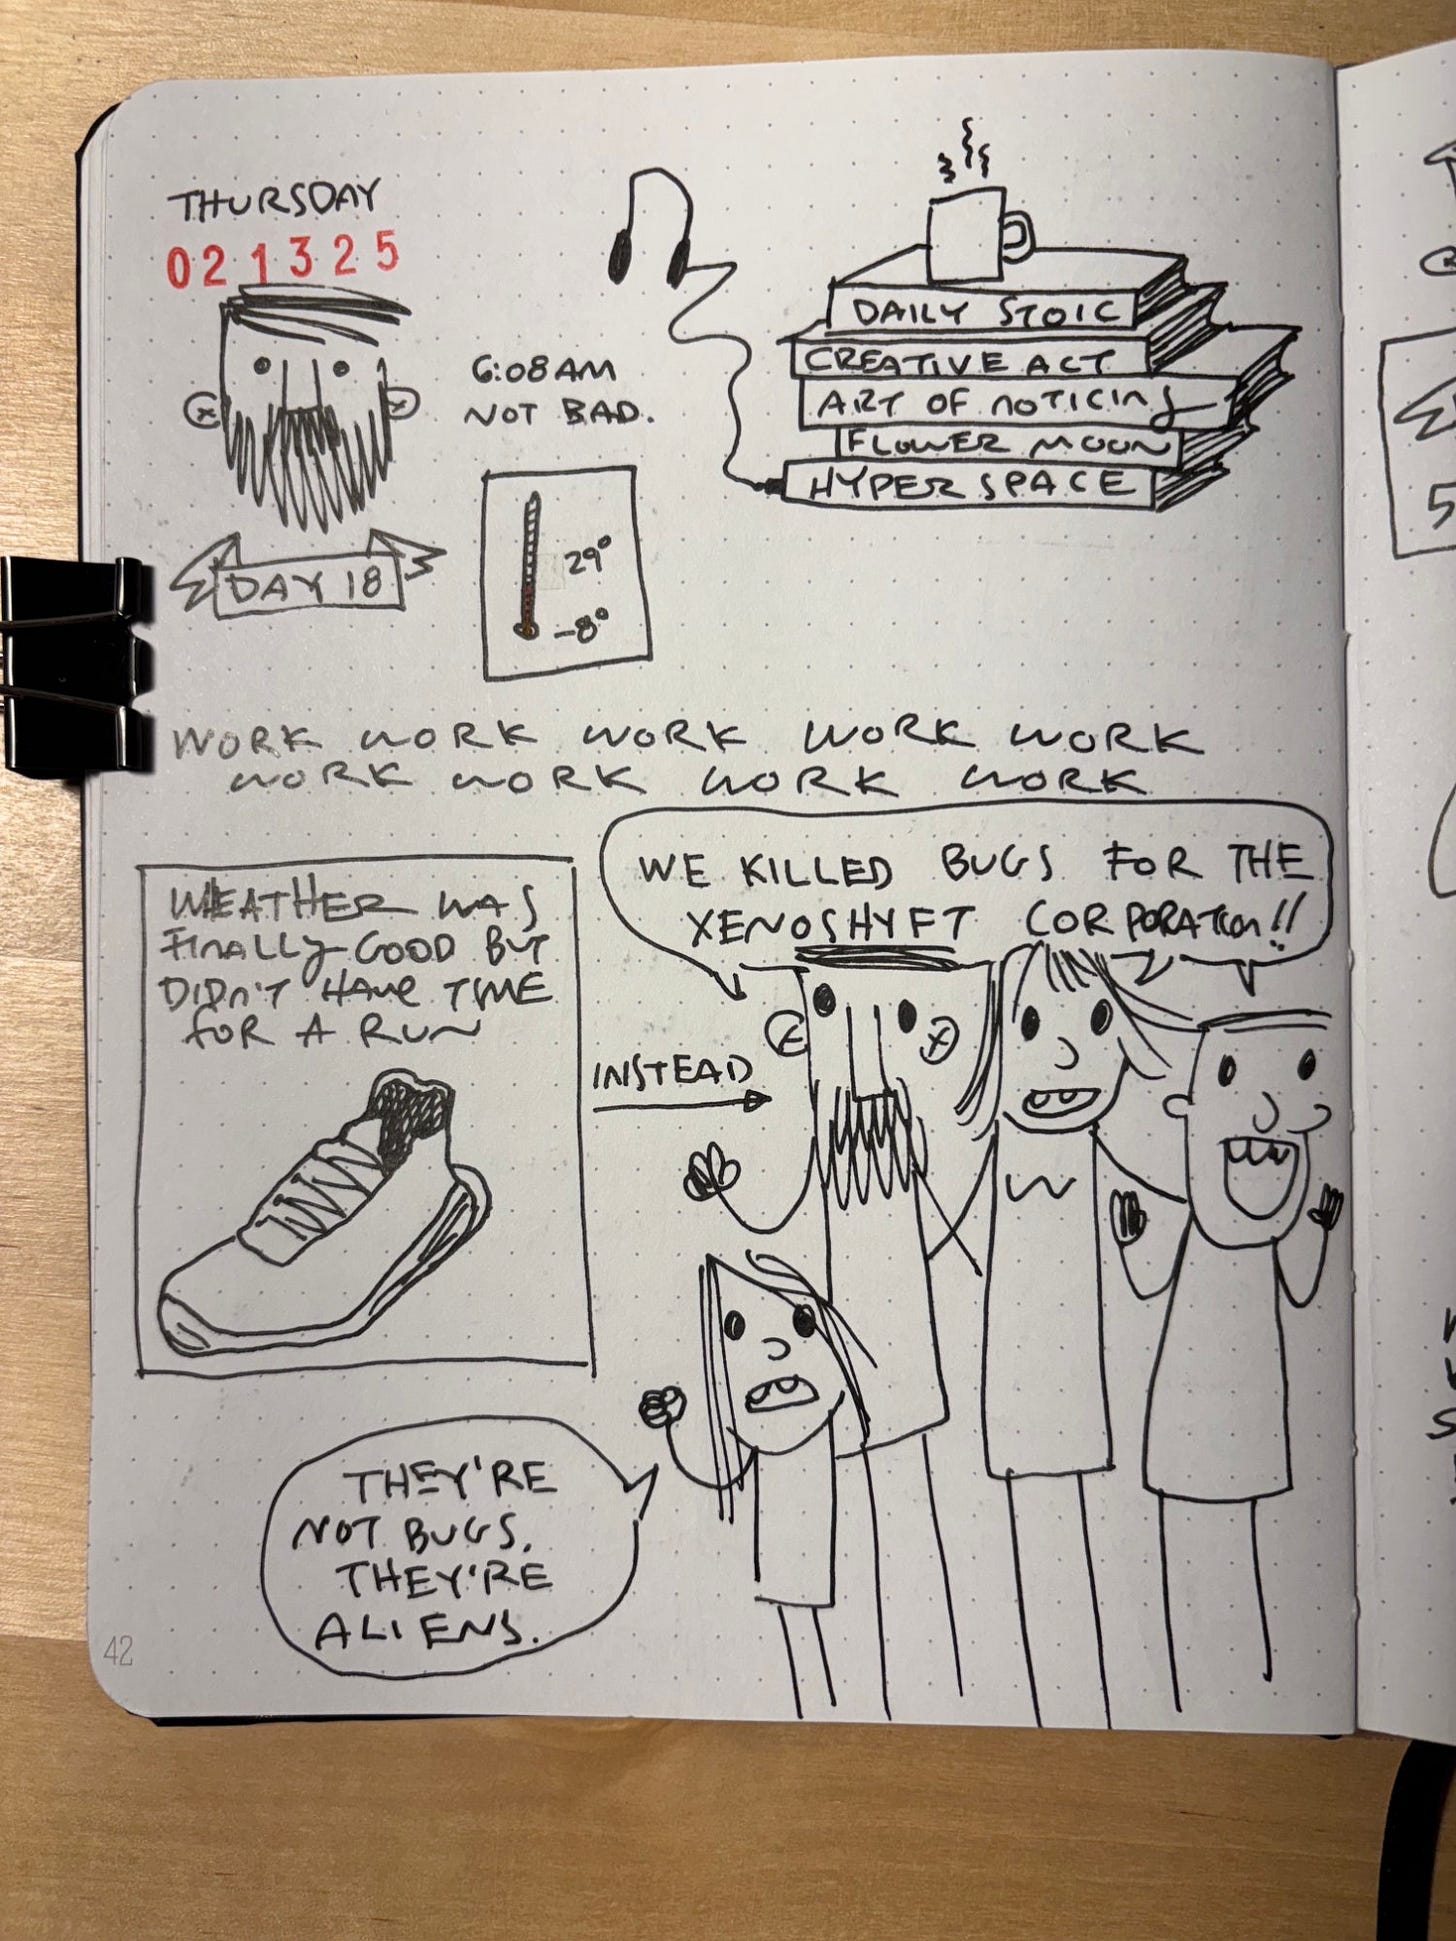 THURSDAY
021325
6:08AM
NOT BAD.
DAY 18
29°
-8°
DAILY STOIC
CREATIVE ACT
ART OF NOTICING
FLOWER MOON
HYPER SPACE
WORK WORK WORK WORK WORK
WORK WORK WORK WORK
WEATHER WAS
FINALLY GOOD BUT
DIDN'T HAVE TIME
FOR A RUN
INSTEAD
WE KILLED BUGS FOR THE
XENOSHYFT CORPORATION!!
THEY'RE
NOT BUGS.
THEY'RE
ALIENS.
42